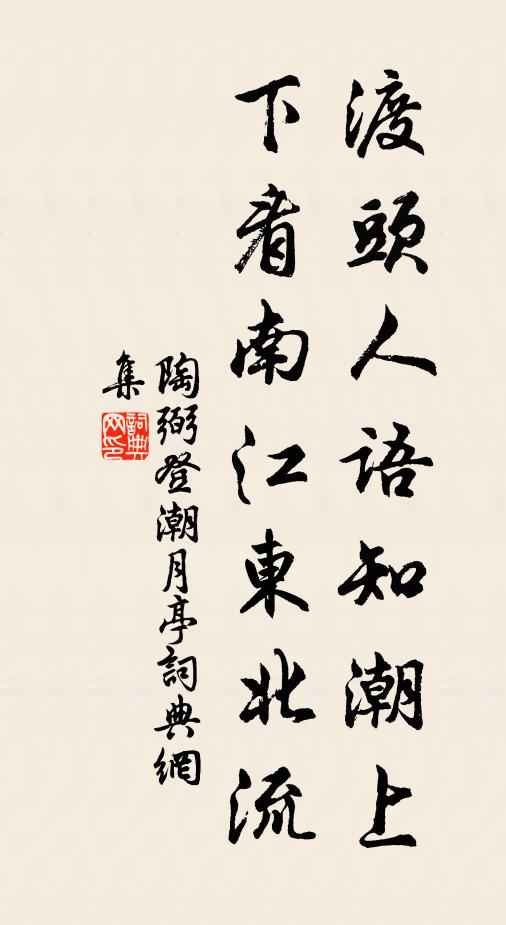 渡頭人語知潮上
下看南江東北流
陶弼登潮月亭詞典網
集
詞典網印